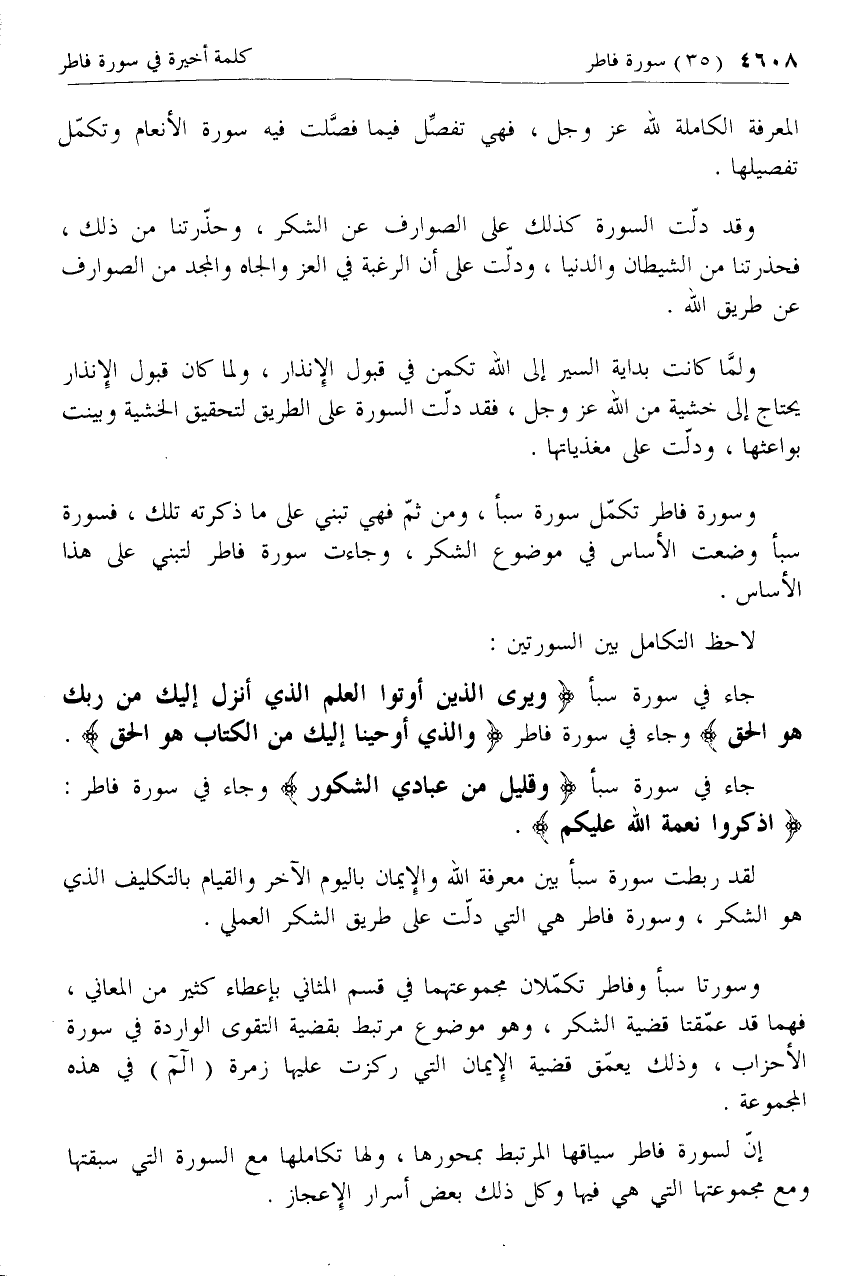 ٤٦٠٨ (٣٥) سورة فاطر كلمة أخيرة في سورة فاطر
المعرفة الكاملة لله عز وجل ، فهي تفصِّل فيما فصَّلت فيه سورة الأنعام وتكمّل
تفصيلها .
وقد دلّت السورة كذلك على الصوارف عن الشكر ، وحذّرتنا من ذلك ،
فحذرتنا من الشيطان والدنيا ، ودلّت على أن الرغبة في العز والجاه والمجد من الصوارف
عن طريق الله .
ولمَّا كانت بداية السير إلى الله تكمن في قبول الإنذار ، ولما كان قبول الإنذار
يحتاج إلى خشية من الله عز وجل ، فقد دلّت السورة على الطريق لتحقيق الخشية وبينت
بواعثها ، ودلّت على مغذياتها .
وسورة فاطر تكمّل سورة سبأ ، ومن ثمّ فهي تبني على ما ذكرته تلك ، فسورة
سبأ وضعت الأساس في موضوع الشكر ، وجاءت سورة فاطر لتبني على هذا
الأساس .
لاحظ التكامل بين السورتين :
جاء في سورة سبأ ﴿ ويرى الذين أوتوا العلم الذي أنزل إليك من ربك
هو الحق ﴾ وجاء في سورة فاطر ﴿ والذي أوحينا إليك من الكتاب هو الحق ﴾ .
جاء في سورة سبأ ﴿ وقليل من عبادي الشكور ﴾ وجاء في سورة فاطر :
﴿ اذكروا نعمة الله عليكم ﴾ .
لقد ربطت سورة سبأ بين معرفة الله والإيمان باليوم الآخر والقيام بالتكليف الذي
هو الشكر ، وسورة فاطر هي التي دلّت على طريق الشكر العملي .
وسورتا سبأ وفاطر تكمّلان مجموعتهما في قسم المثاني بإعطاء كثير من المعاني ،
فهما قد عمّقتا قضية الشكر ، وهو موضوع مرتبط بقضية التقوى الواردة في سورة
الأحزاب ، وذلك يعمّق قضية الإيمان التي ركزت عليها زمرة ( الٓمٓ ) في هذه
المجموعة .
إنّ لسورة فاطر سياقها المرتبط بمحورها ، ولها تكاملها مع السورة التي سبقتها
ومع مجموعتها التي هي فيها وكل ذلك بعض أسرار الإعجاز .